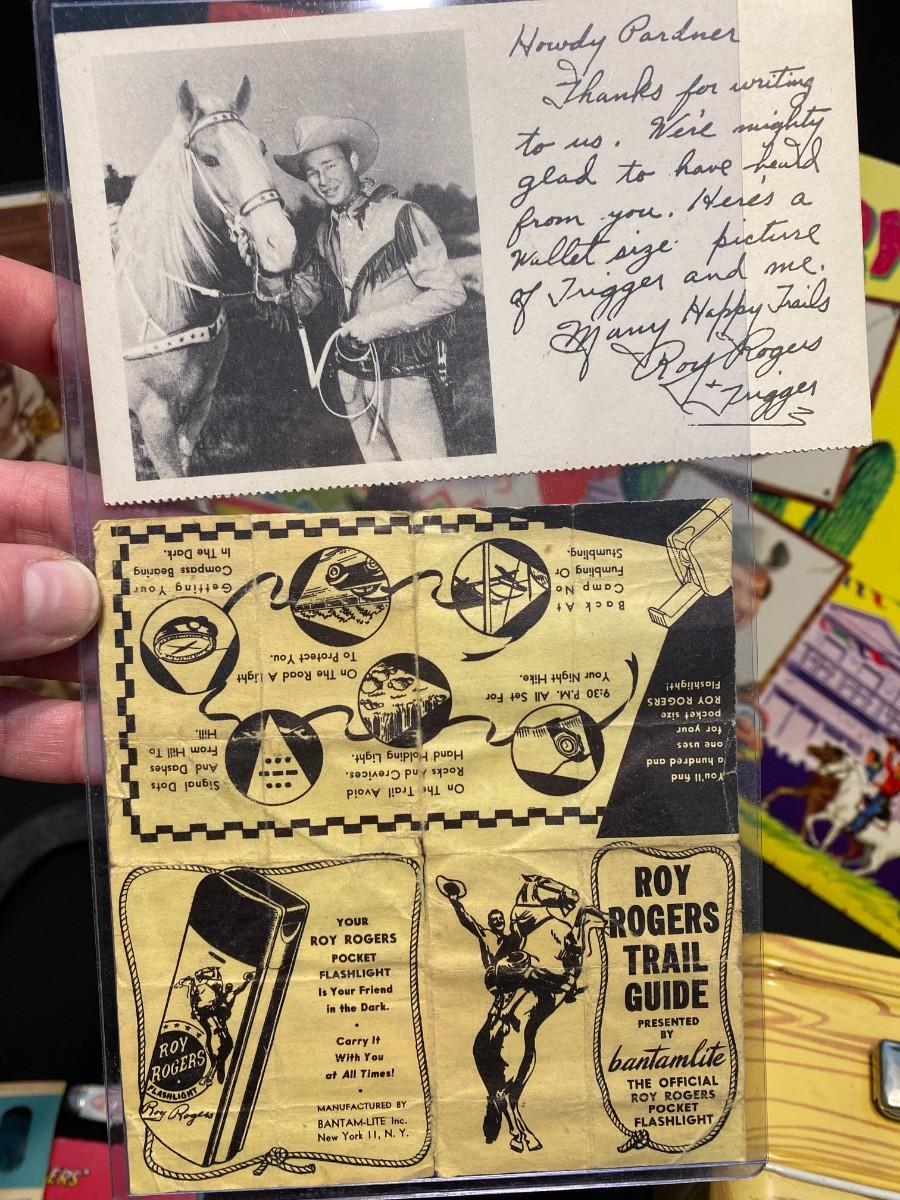 Howdy Pardner
Thanks for writing
to us. We're mighty
glad to have heard
from you. Here's a
wallet size picture
of Trigger and me.
Many Happy Trails
Roy Rogers
+ Trigger
You'll find
a hundred and
one uses
for your
pocket size
ROY ROGERS
Flashlight!
9:30 P.M. All Set For
Your Night Hike.
On The Trail Avoid
Rocks And Crevices.
Hand Holding Light.
Signal Dots
And Dashes
From Hill To
Hill.
Getting Your
Compass Bearing
In The Dark.
On The Road A Light
To Protect You.
Back At
Camp No
Fumbling Or
Stumbling.
ROY
ROGERS
FLASHLIGHT
Roy Rogers
YOUR
ROY ROGERS
POCKET
FLASHLIGHT
Is Your Friend
in the Dark.
•
Carry It
With You
at All Times!
•
MANUFACTURED BY
BANTAM-LITE Inc.
New York 11, N. Y.
ROY
ROGERS
TRAIL
GUIDE
PRESENTED
BY
bantamlite
THE OFFICIAL
ROY ROGERS
POCKET
FLASHLIGHT